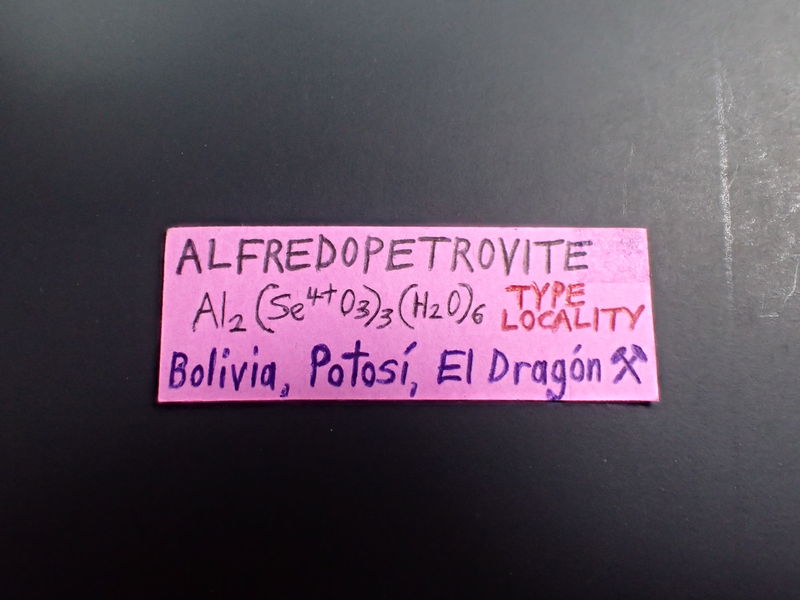 ALFREDOPETROVITE
Al₂(Se⁴⁺O₃)₃(H₂O)₆ TYPE LOCALITY
Bolivia, Potosí, El Dragón ⚒